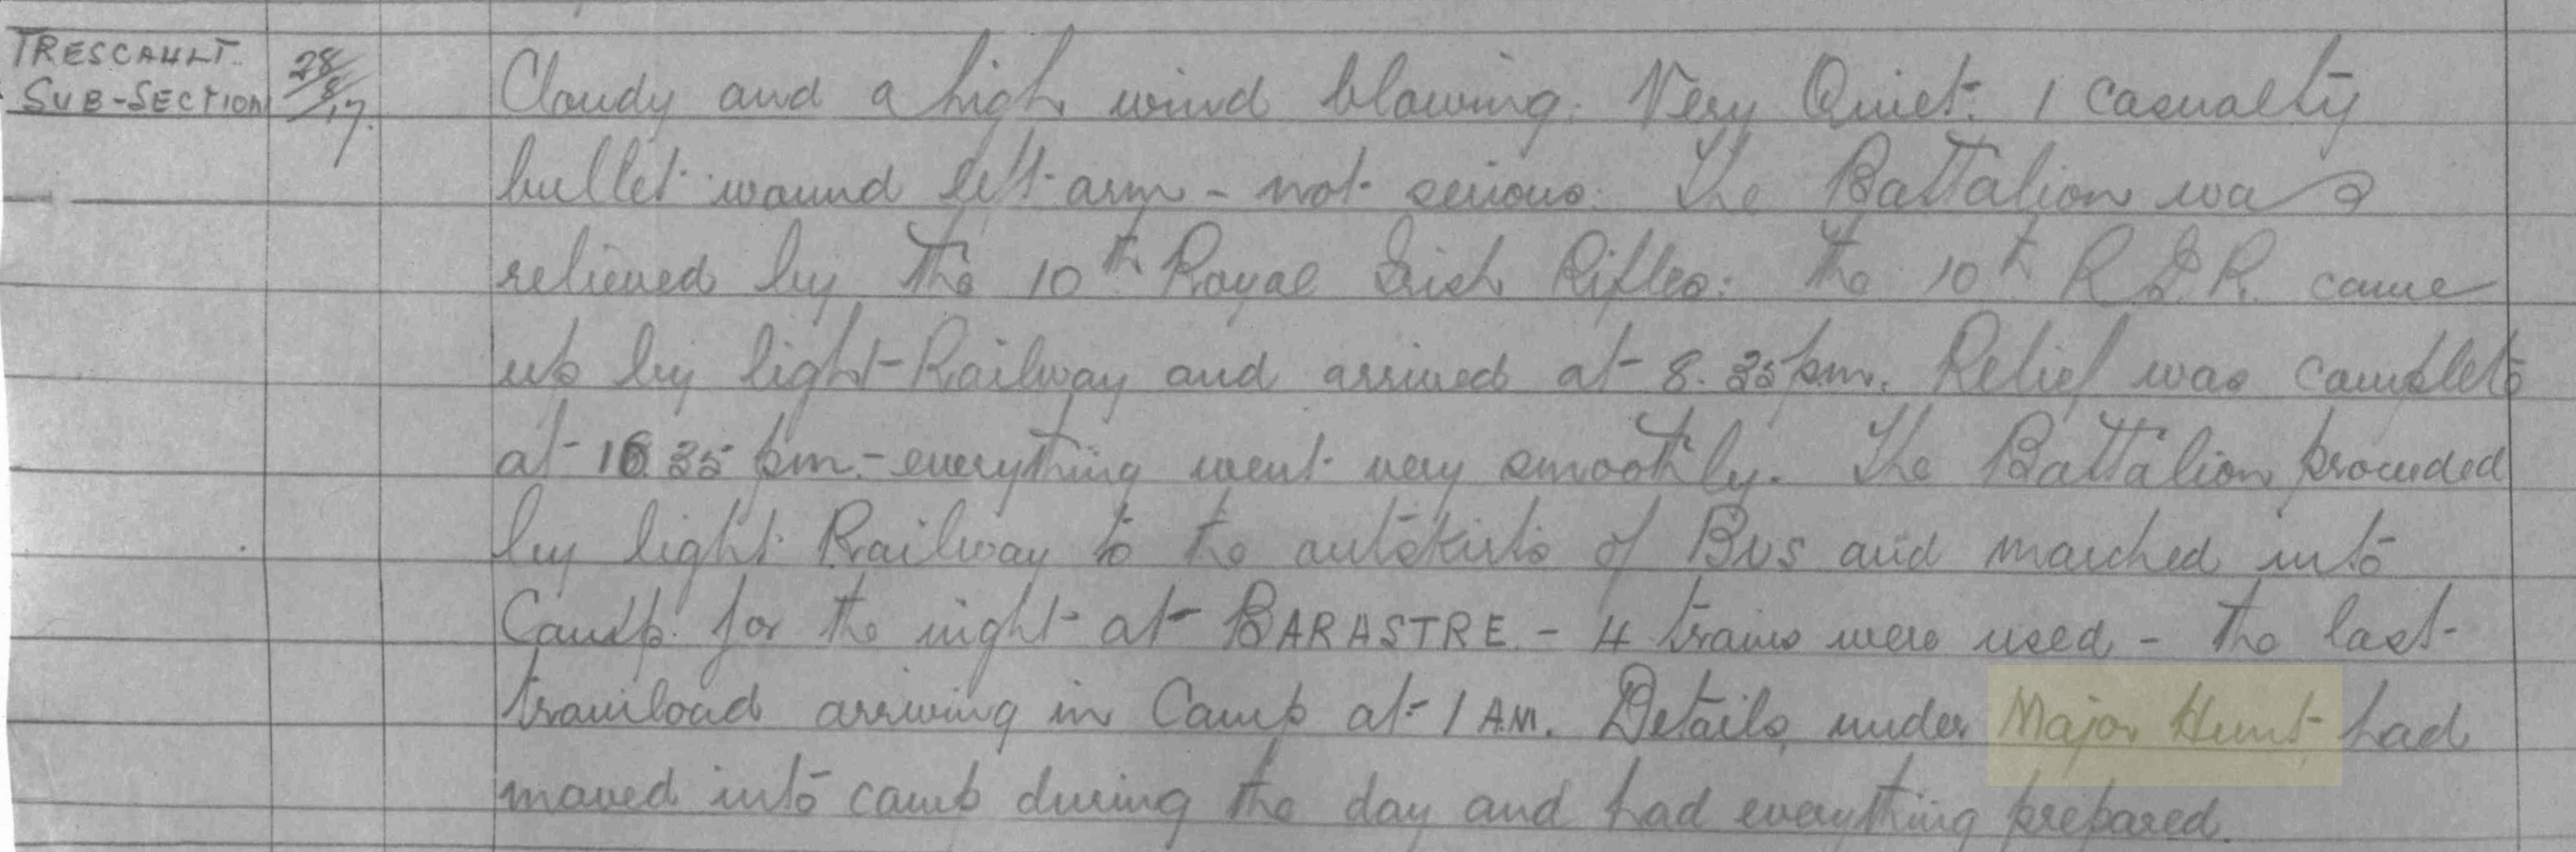 TRESCAULT
SUB-SECTION
28/8/17.
Cloudy and a high wind blowing. Very Quiet. 1 casualty
bullet wound left arm - not serious. The Battalion was
relieved by the 10th Royal Irish Rifles: the 10th R.I.R. came
up by light Railway and arrived at 8.35 pm. Relief was complete
at 10.35 pm. - everything went very smoothly. The Battalion proceeded
by light Railway to the outskirts of BUS and marched into
Camp for the night at BARASTRE - 4 trains were used - the last
trainload arriving in Camp at 1 AM. Details under Major Hunt had
moved into camp during the day and had everything prepared.